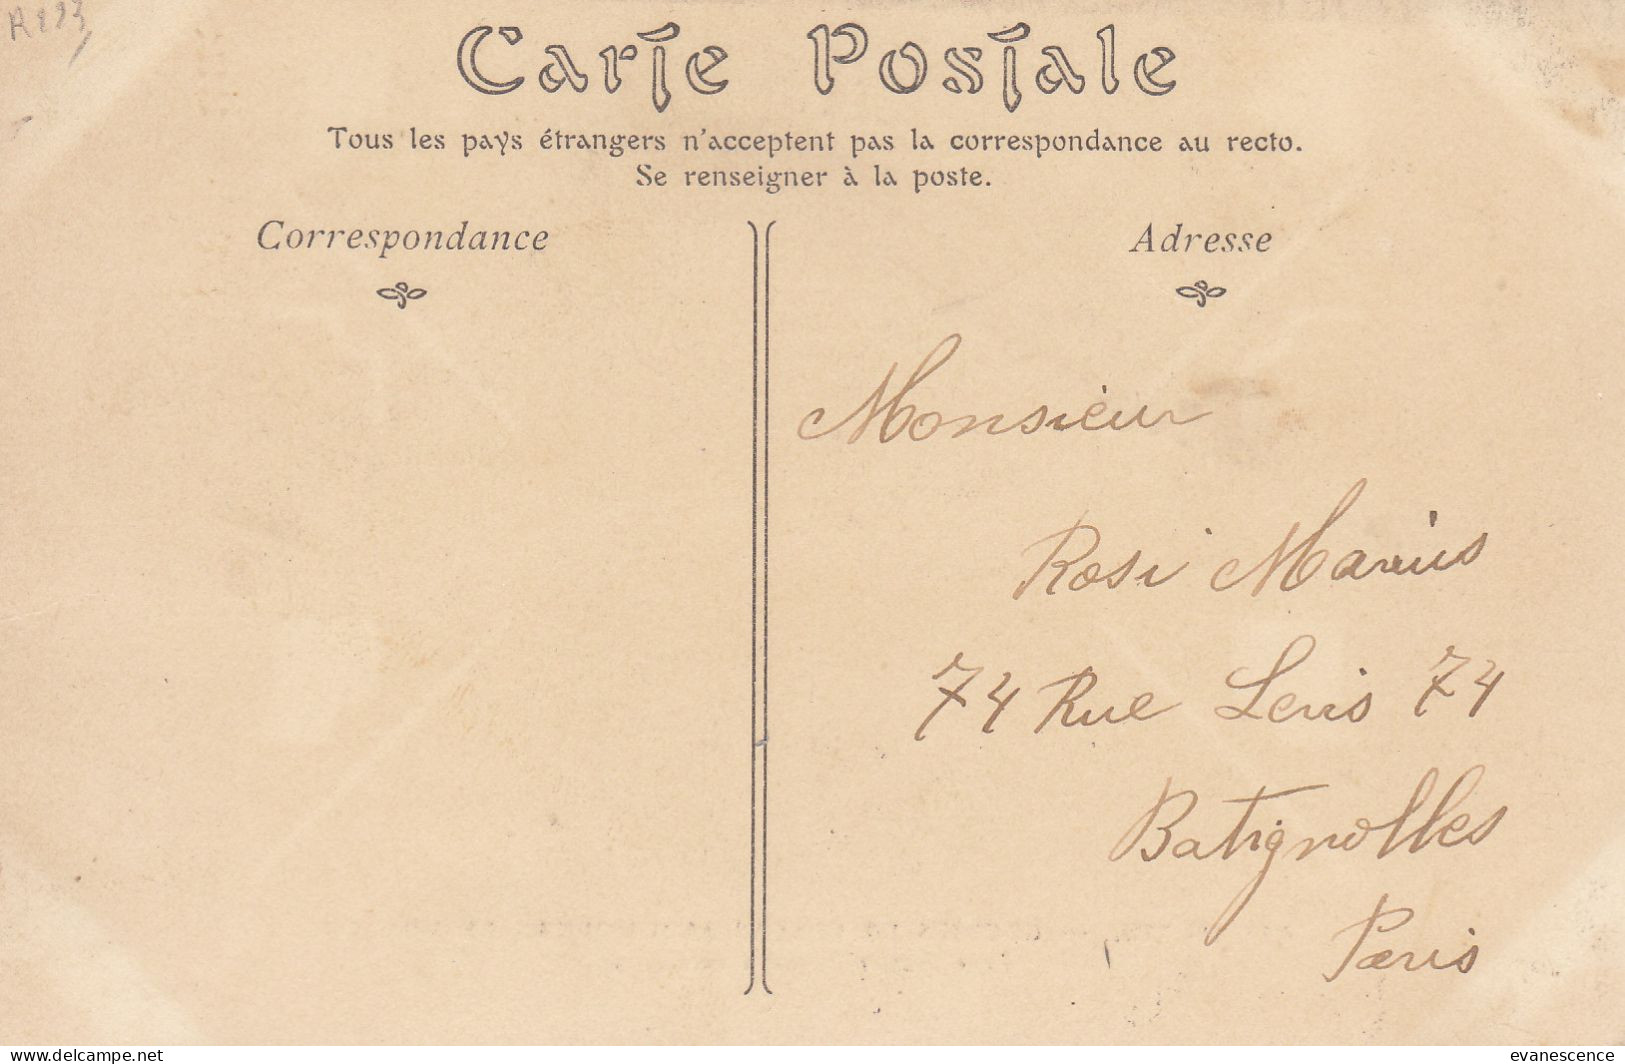 Carte Postale
Tous les pays étrangers n'acceptent pas la correspondance au recto.
Se renseigner à la poste.
Correspondance
Adresse
Monsieur
Rosi Marius
74 Rue Lenis 74
Batignolles
Paris
www.delcampe.net
evanescence